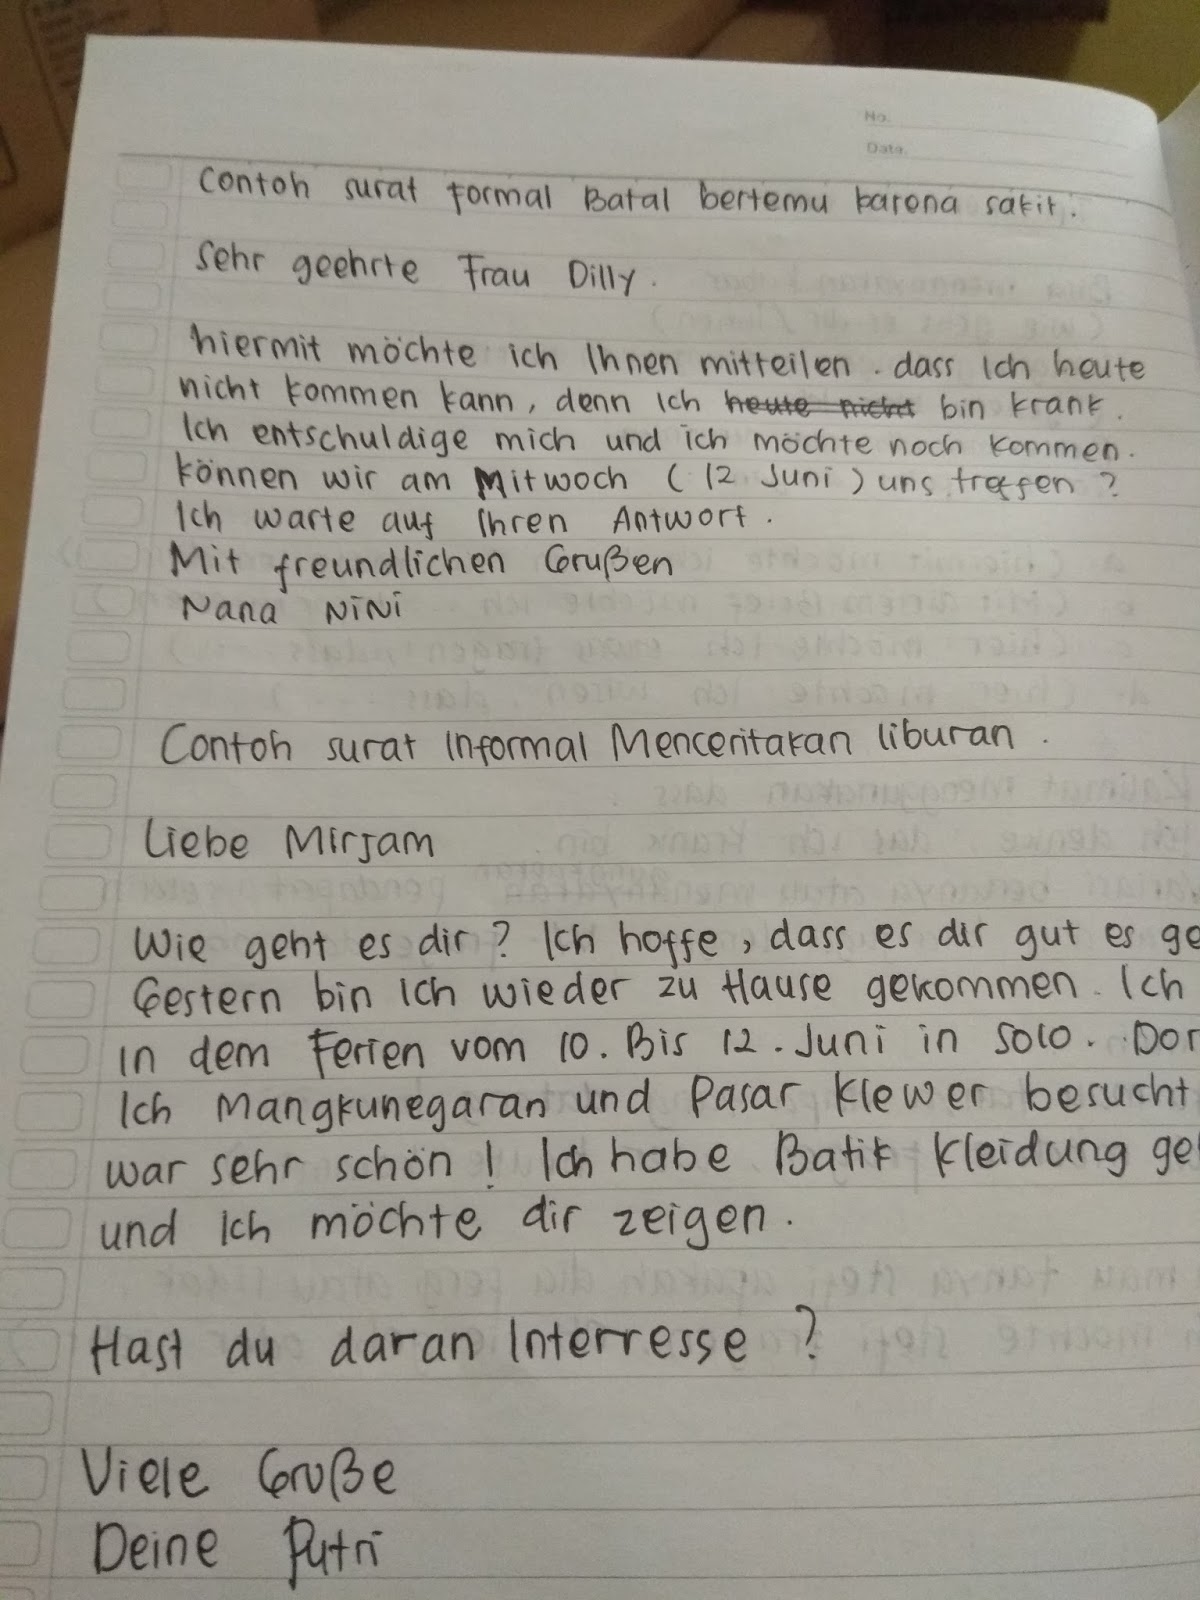 No.
Date.
Contoh surat formal Batal bertemu karena sakit.
Sehr geehrte Frau Dilly.
hiermit möchte ich Ihnen mitteilen. dass ich heute
nicht kommen kann, denn ich heute nicht bin krank.
Ich entschuldige mich und ich möchte noch kommen.
können wir am Mitwoch (12 Juni) uns treffen?
Ich warte auf Ihren Antwort.
Mit freundlichen Grußen
Nana NiNi
Contoh surat Informal Menceritakan liburan.
Liebe Mirjam
Wie geht es dir? Ich hoffe, dass es dir gut es ge
Gestern bin Ich wieder zu Hause gekommen. Ich
in dem Ferien vom 10. Bis 12. Juni in Solo. Dor
Ich Mangkunegaran und Pasar Klewer besucht
war sehr schön! Ich habe Batik Kleidung ge
und Ich möchte dir zeigen.
Hast du daran Interresse?
Viele Gruße
Deine Putri